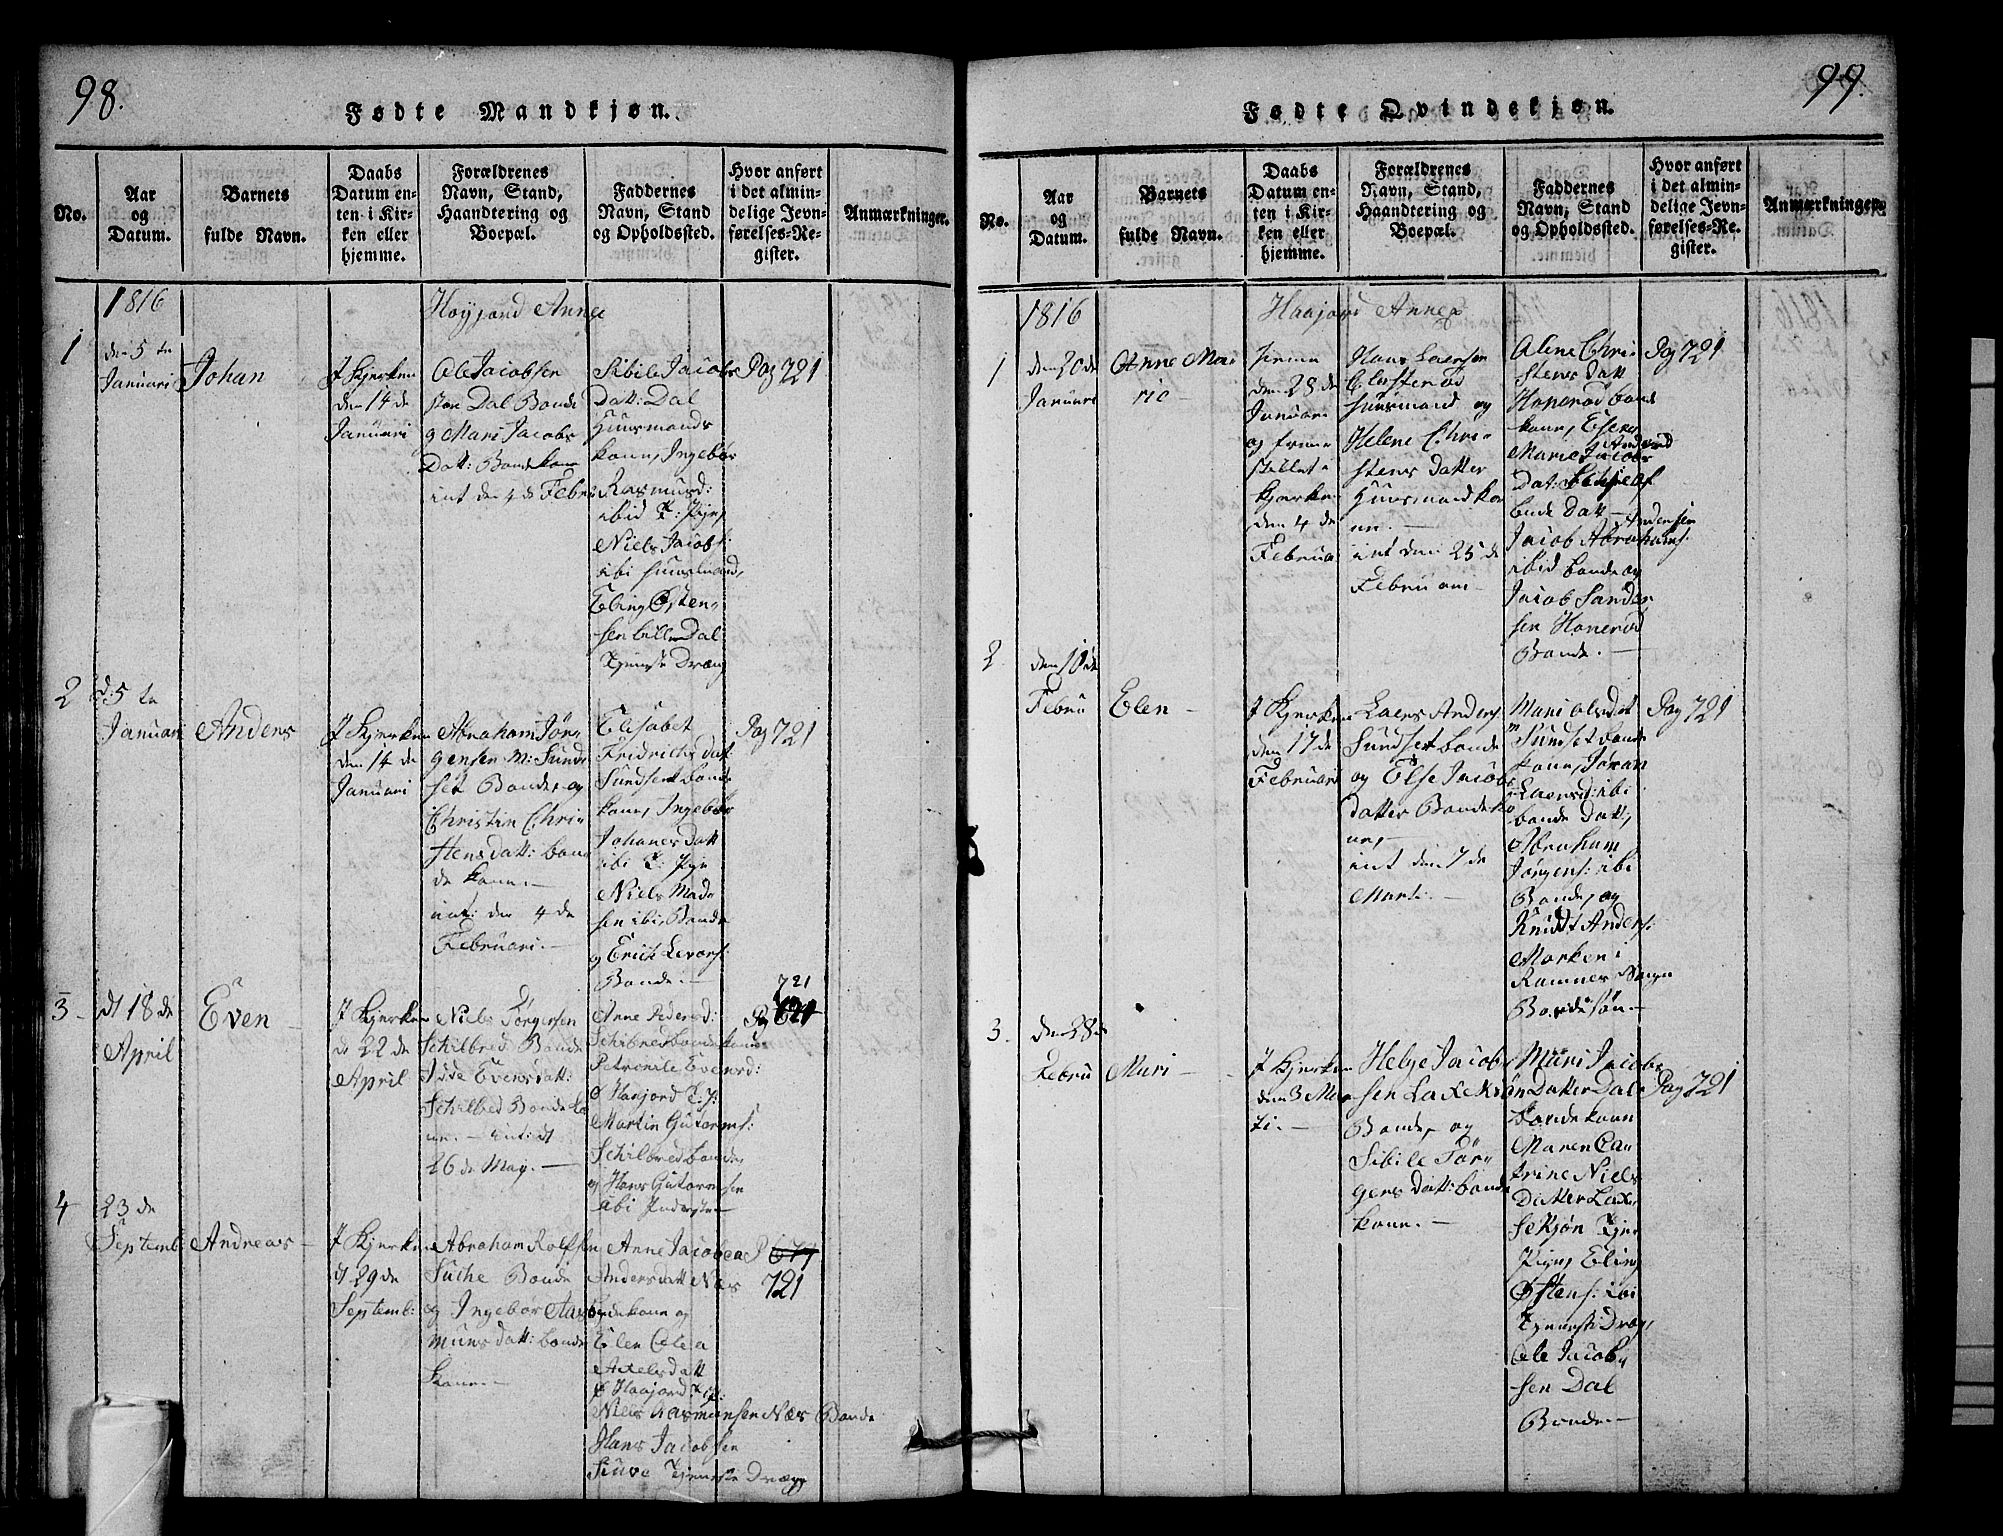 98.
Fødte Mandkjøn.
No.
Aar
og
Datum.
Barnets
fulde Navn.
Daabs
Datum en-
ten i Kir-
ken eller
hjemme.
Forældrenes
Navn, Stand,
Haandtering og
Boepæl.
Faddernes
Navn, Stand
og Opholdssted.
Hvor anført
i det almin-
delige Jevn-
førelses-Re-
gister.
Anmærkninger.
1816
Høyjord Annex
1
den 5 te
Januari
Johan
I Kjerken
den 14 de
Januari
Ole Jacobsen
Dal Bonde
og Mari Jacobs
Datt: Bondekone
int den 4 de Febru
Sibile Jacobs
Datt: Dal
Huusmands
kone, Ingebør
Rasmusd:
ibid T: Pige,
Niels Jacobs:
ibi Huusmand,
Eling Østen
sen Dal
Tjeneste Dreng
Pag 721
2
d: 5 te
Januari
Anders
I Kjerken
den 14 de
Januari
Abraham Jør
gensen M: Sund
set Bonde, og
Christin Chri
stensdatt: bon
de kone.-
int: den 4 de
Februari.-
Elisabet
Fridrichs dat
Sundset bonde
kone, Ingebør
Johanes datt
ibi T: Pige
Niels Mad
sen ibi, Bonde
og Erich Levors:
Bonde.-
Pag 721
3
dt 18 de
April
Even
I Kjerken
d 22 de
April
Niels Jørgensen
Schilbred Bonde
Idde Evensdatt:
Schilbred Bonde ko
ne.- int: dt
26 de May.-
Anne Pedersd:
Schilbred bondekone
Petronile Evensd:
Haajord T: P:
Martin Gutorms:
Schilbred bonde,
og Hans Gutormsen
ibi
721
Pag
4
23 de
Septemb:
Andreas
I Kjerken
dt 29 de
Septemb:
Abraham Rolfsen
Bonde
og Ingebør Aas
munsdatt: bonde
kone.-
Anne Jacobea
Andersdatt Næs
Bondekone og
Elen Olea
Axelsdatt
Haajord T: P:
Niels Aasmunsen Næs Bonde
Hans Jacobsen
Tjeneste Dreng
P 677
721
99.
Fødte Qvindekjøn.
No.
Aar
og
Datum.
Barnets
fulde Navn.
Daabs
Datum en-
ten i Kir-
ken eller
hjemme.
Forældrenes
Navn, Stand,
Haandtering og
Boepæl.
Faddernes
Navn, Stand
og Opholdssted.
Hvor anført
i det almin-
delige Jevn-
førelses-Re-
gister.
Anmærkninger.
1816
Haajord Annex
1
den 20 de
Januari
Anne Ma
rie
hiema
den 28 de
Januari
og frem
stellet i
Kjerken
den 4 de
Februa
Hans Laersen
Elesterød
Huusmand og
Helene Chri
stens datter
Huusmand ko
ne.-
int den 25 de
Februari
Alene Chri
stens datt
Honerød bonde
kone,
Marie Jacobs
Dat:
bonde datt
Andersen
Jacob Abrahams:
ibid bonde og
Jacob Sander
sen Honerød
Bonde.-
Pag 721
2
den 10 de
Febru
Elen
I Kjerken
den 17 de
Februari
Laers Anders:
Sundset bonde
og Else Jacobs
datter Bondeko
ne,
int den 7 de
Marti.-
Mari olsdat
Sundset bonde
kone, Joran
Laersd: ibi
bonde datt,
Abraham
Jørgens: ibi
Bonde, og
Knudt Anders:
Morken i
Ramnes Sogn
Bondesøn.-
Pag 721
3.
den 28 de
Febru
Mari
I Kjerken
den 3 Mar
ti.-
Helje Jacob
sen Laxekjøn
Bonde, og
Sibile Jør
gens datt: bonde
kone.-
Mari Jacobs
Datter Dal
bondekone
Maren Ca
trine Niels
Datter Lax
sekjøn Tje:
Pige, Eling
Østens: ibi
Tjeneste Dreng,
Ole Jacob
sen Dal
Bonde.-
Pag 721